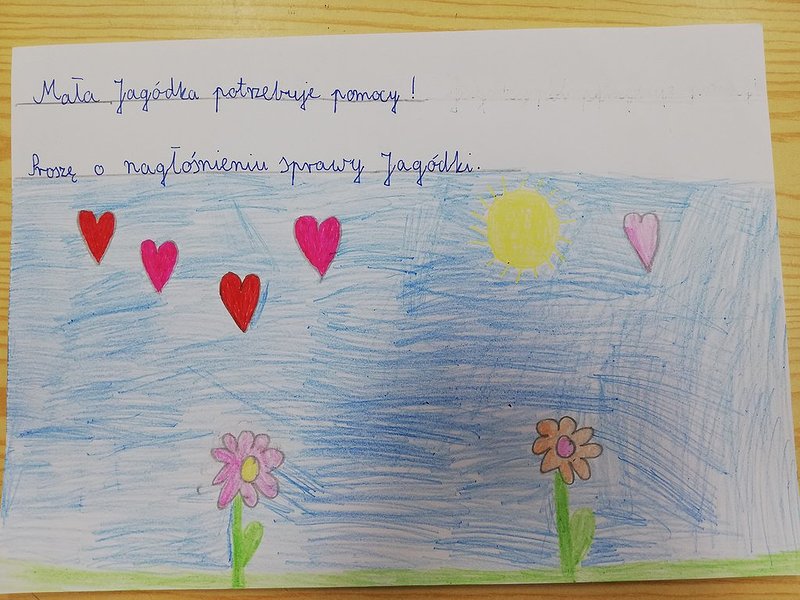 Mała Jagódka potrzebuje pomocy!
Proszę o nagłośnieniu sprawy Jagódki.